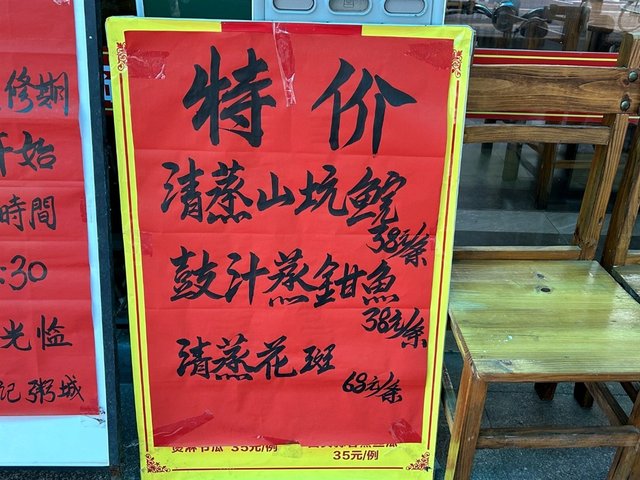 修期
开始
時間
:30
光临
记粥城
特价
清蒸山坑鲩
38元/条
鼓汁蒸鉗魚
38元/条
清蒸花斑
68元/条
35元/例
35元/例